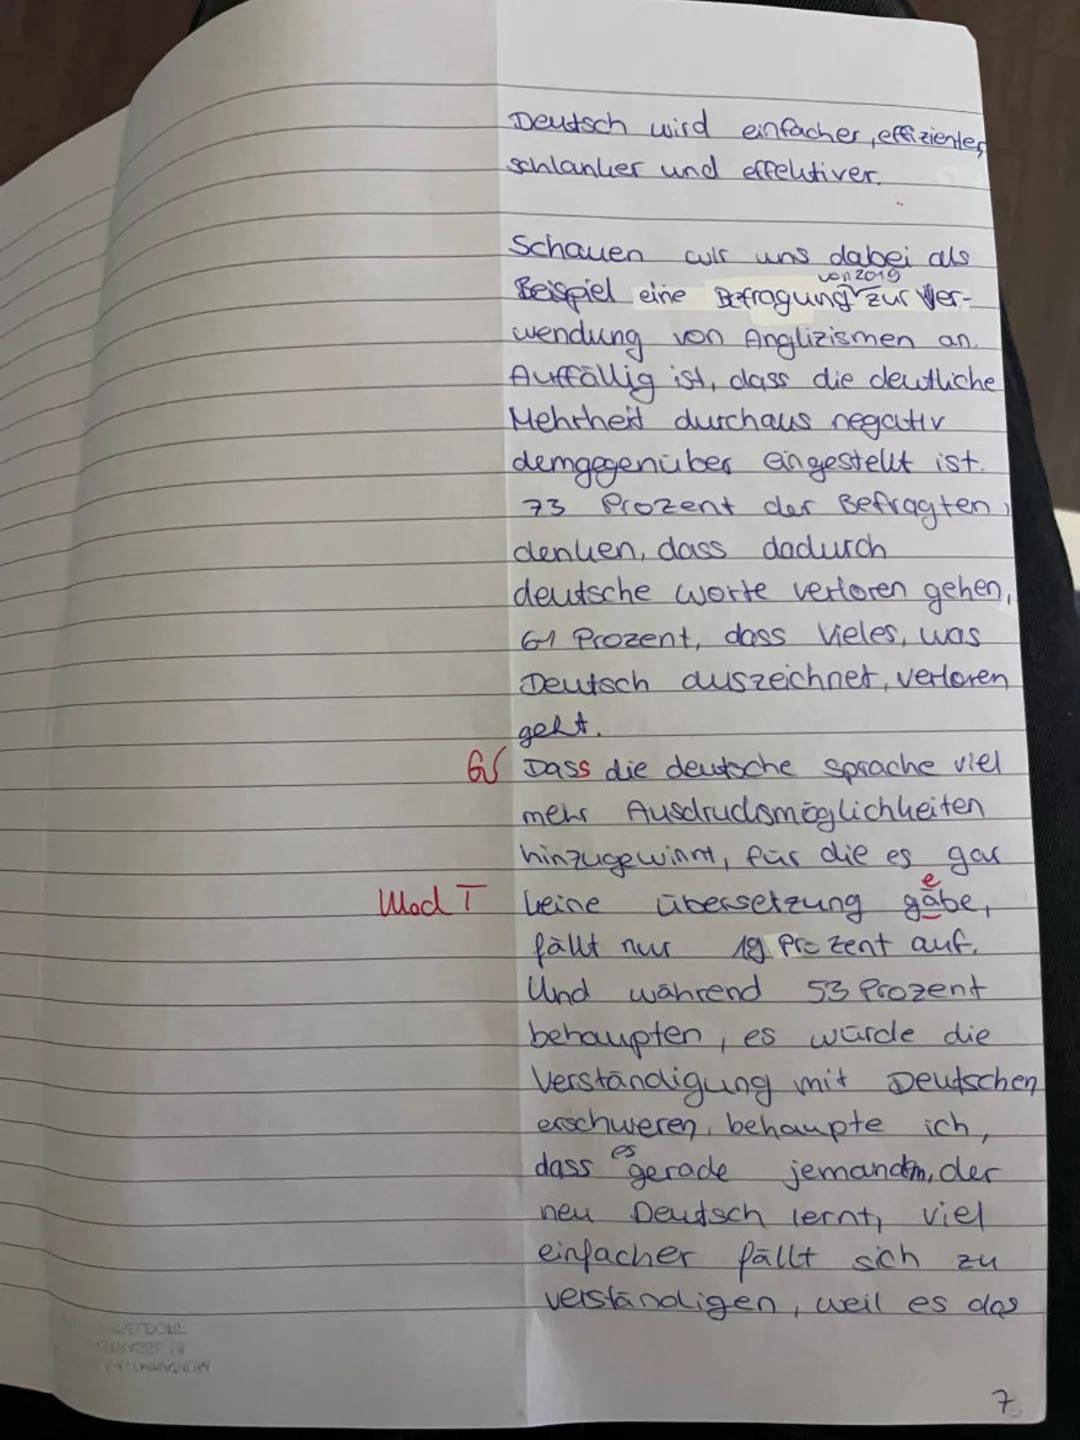 Deutsch wird einfacher, effizienter,
schlanker und effektiver.
Schauen wir uns dabei als
von 2019
Beispiel eine Befragung zur Ver-
wendung von Anglizismen an.
Auffällig ist, dass die deutliche
Mehrheit durchaus negativ
demgegenüber eingestellt ist.
73 Prozent der Befragten,
denken, dass dadurch
deutsche Worte verloren gehen,
61 Prozent, dass Vieles, was
Deutsch auszeichnet, verloren
geht.
Dass die deutsche Sprache viel
mehr Ausdrucksmöglichkeiten
hinzugewinnt, für die es gar
e
Mod T keine Übersetzung gäbe,
fällt nur 19 Prozent auf.
Und während 53 Prozent
behaupten, es würde die
Verständigung mit Deutschen
erschweren, behaupte ich,
es
dass gerade jemandem, der
neu Deutsch lernt, viel
einfacher fällt sich zu
verständigen, weil es das
7